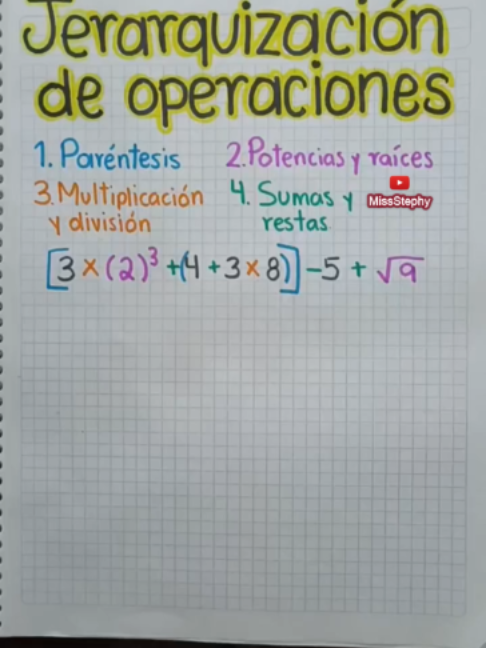 Jerarquización
de operaciones
1. Paréntesis 2. Potencias y raíces
3. Multiplicación y división 4. Sumas y restas
MissStephy
[3 × (2)³ + (4 + 3 × 8)] - 5 + √9